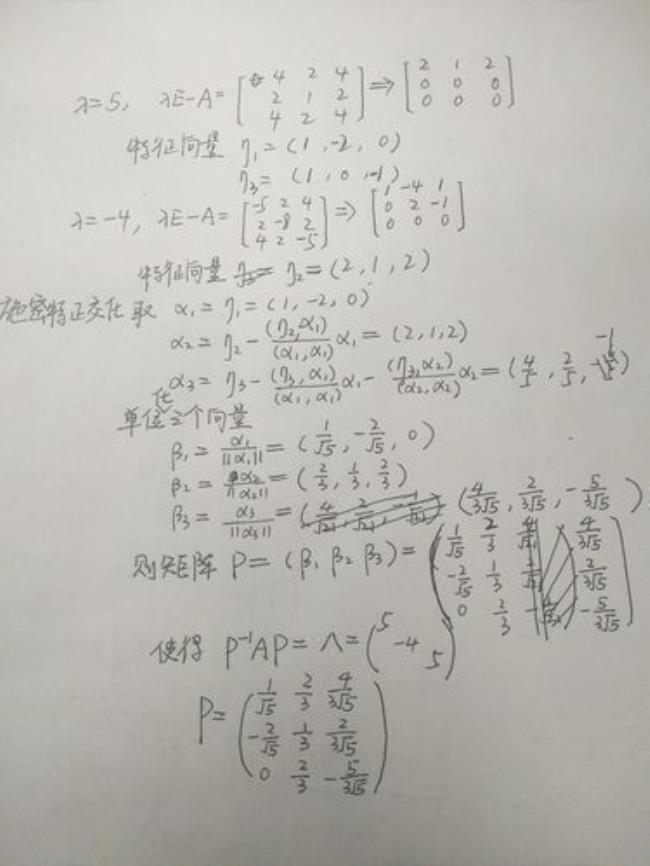 λ=5, λE-A=[4 2 4; 2 1 2; 4 2 4]⇒[2 1 2; 0 0 0; 0 0 0]
特征向量 η₁=(1,-2,0)
η₃=(1,0,-1)
λ=-4, λE-A=[-5 2 4; 2 -8 2; 4 2 -5]⇒[1 -4 1; 0 2 -1; 0 0 0]
特征向量 η₂=(2,1,2)
施密特正交化 取 α₁=η₁=(1,-2,0)
α₂=η₂-(η₂,α₁)/(α₁,α₁)α₁=(2,1,2)
α₃=η₃-(η₃,α₁)/(α₁,α₁)α₁-(η₃,α₂)/(α₂,α₂)α₂=(4/5,2/5,-1)
单位化三个向量
β₁=α₁/||α₁||=(1/√5,-2/√5,0)
β₂=α₂/||α₂||=(2/3,1/3,2/3)
β₃=α₃/||α₃||=(4/3√5,2/3√5,-5/3√5)
则矩阵 P=(β₁ β₂ β₃)=(1/√5 2/3 4/3√5; -2/√5 1/3 2/3√5; 0 2/3 -5/3√5)
使得 P⁻¹AP=Λ=(5 -4 5)
P=(1/√5 2/3 4/3√5; -2/√5 1/3 2/3√5; 0 2/3 -5/3√5)